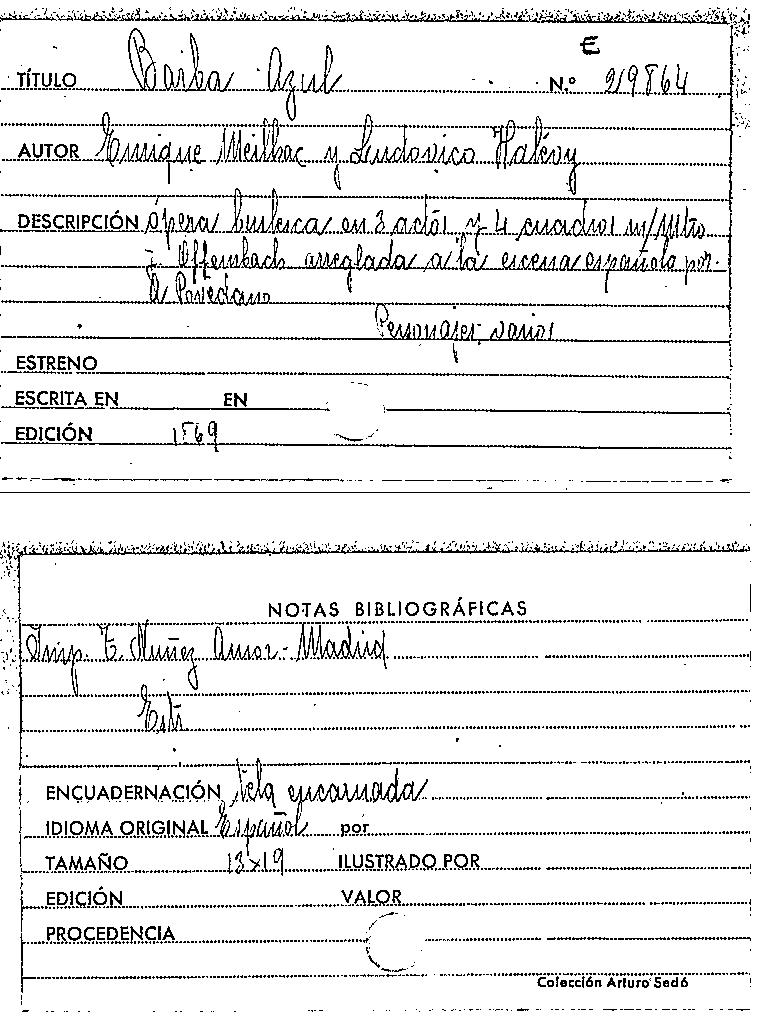 E
TÍTULO Barba Azul N.º 219864
AUTOR Enrique Meilhac y Ludovico Halévy
DESCRIPCIÓN ópera burlesca en 3 actos y 4 cuadros m/Mtro
J. Offenbach arreglada a la escena española por
A Povedano
Personajes: varios
ESTRENO
ESCRITA EN EN
EDICIÓN 1869
NOTAS BIBLIOGRÁFICAS
Imp. T. Nuñez Amor - Madrid
ENCUADERNACIÓN tela encarnada
IDIOMA ORIGINAL Español por
TAMAÑO 13x19 ILUSTRADO POR
EDICIÓN VALOR
PROCEDENCIA
Colección Arturo Sedó